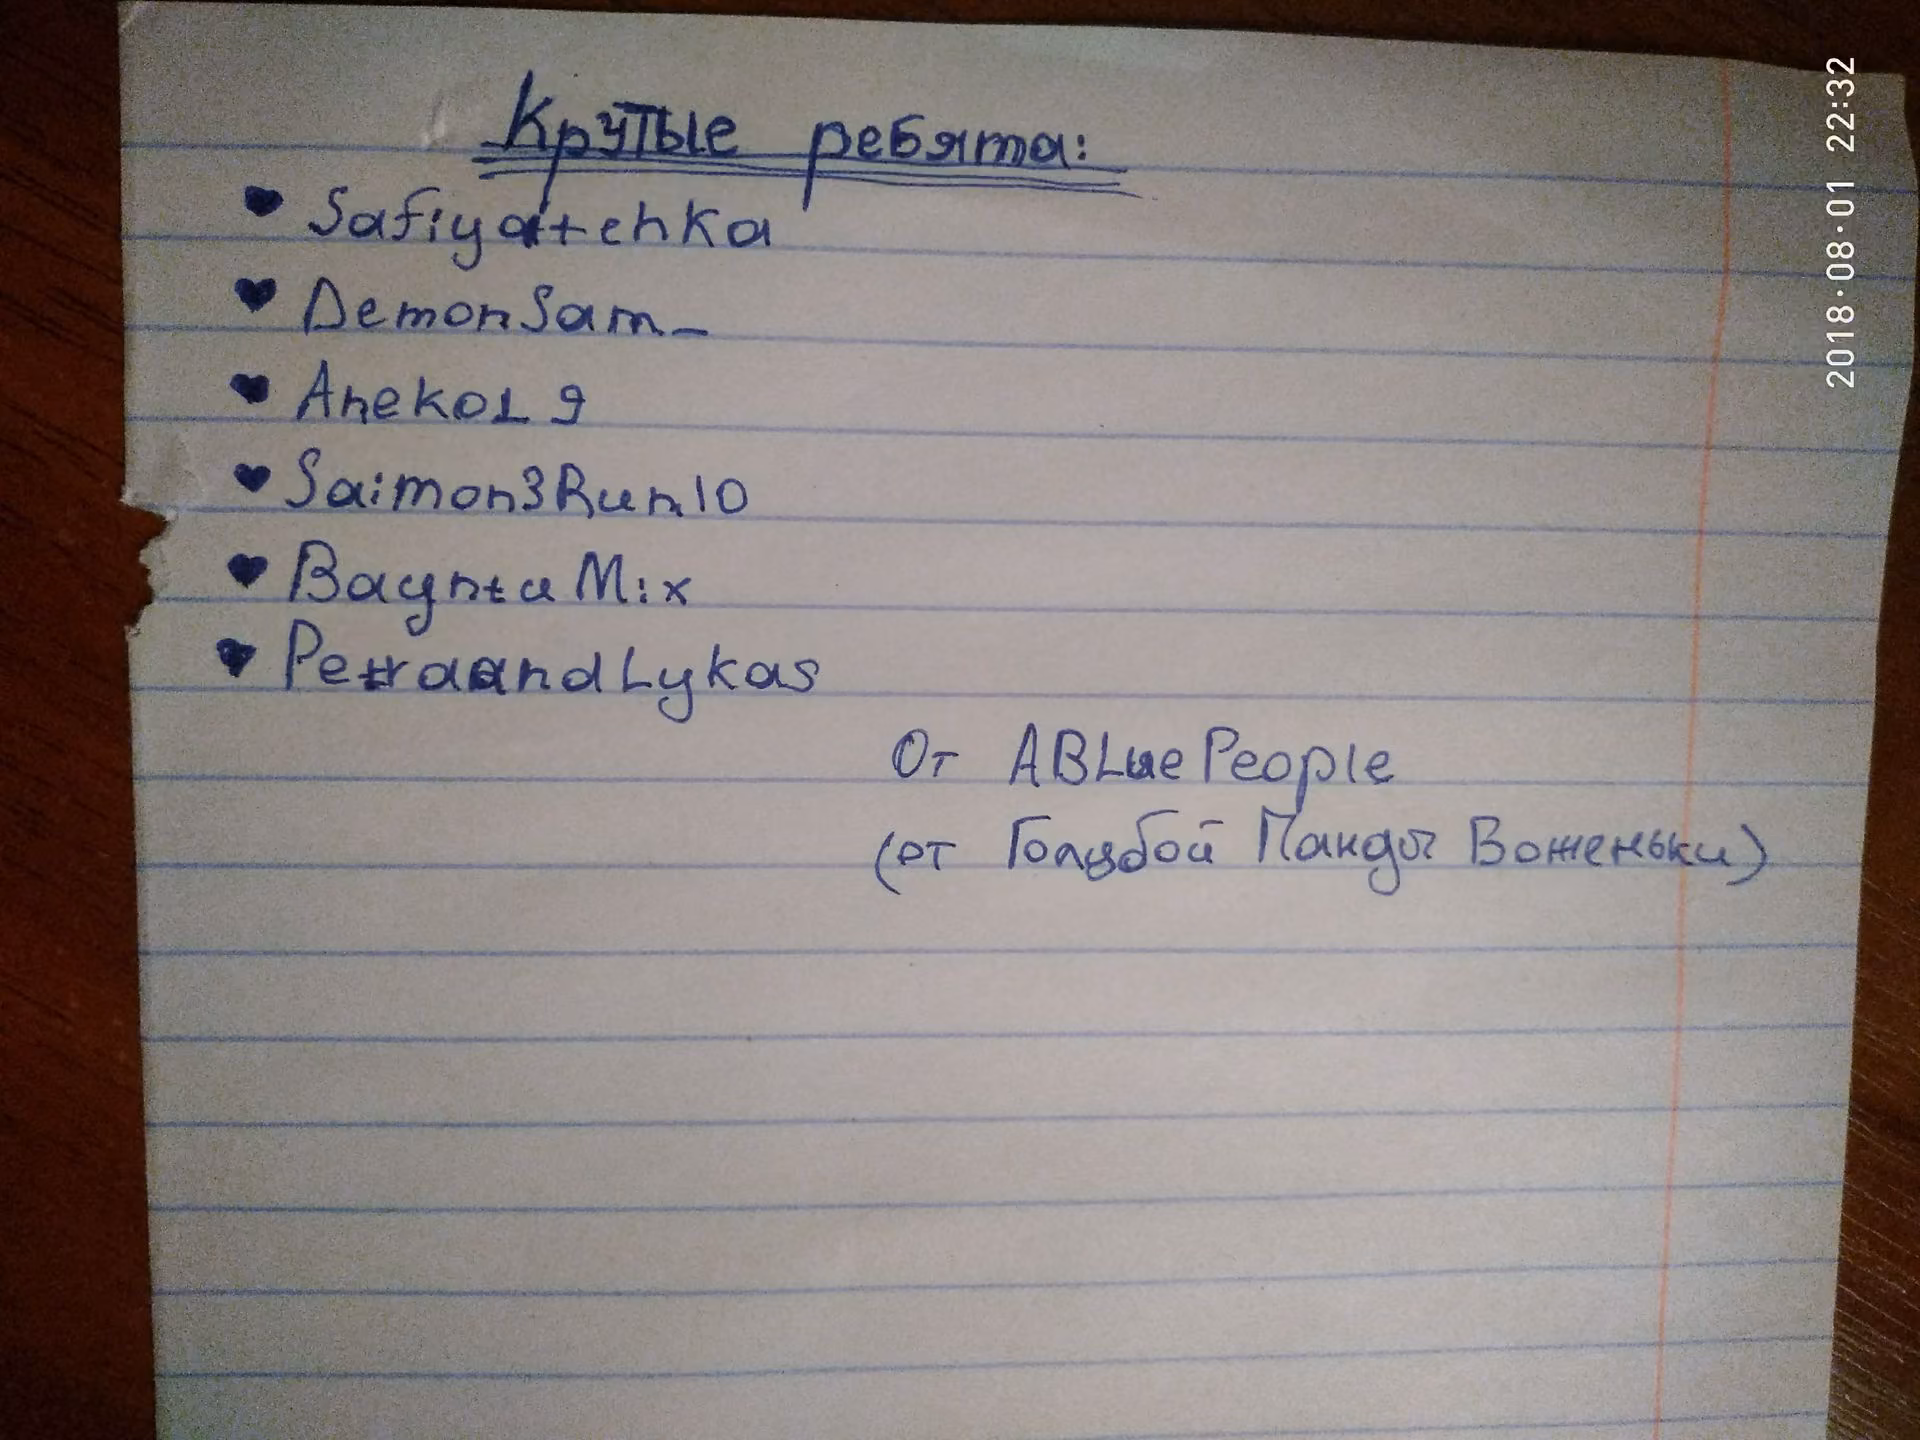 Крутые ребята:
♥ Safiyatehka
♥ DemonSam_
♥ Aneko19
♥ Saimon3Run10
♥ BayntuMix
♥ PetraandLykas
От ABLuePeople
(от Голубой Панды Воженьки)
2018·08·01 22:32